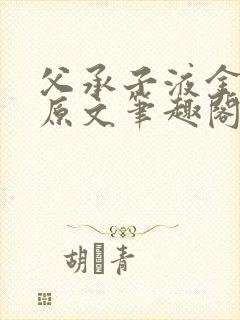 父承子液全
原文笔趣阁
胡 青